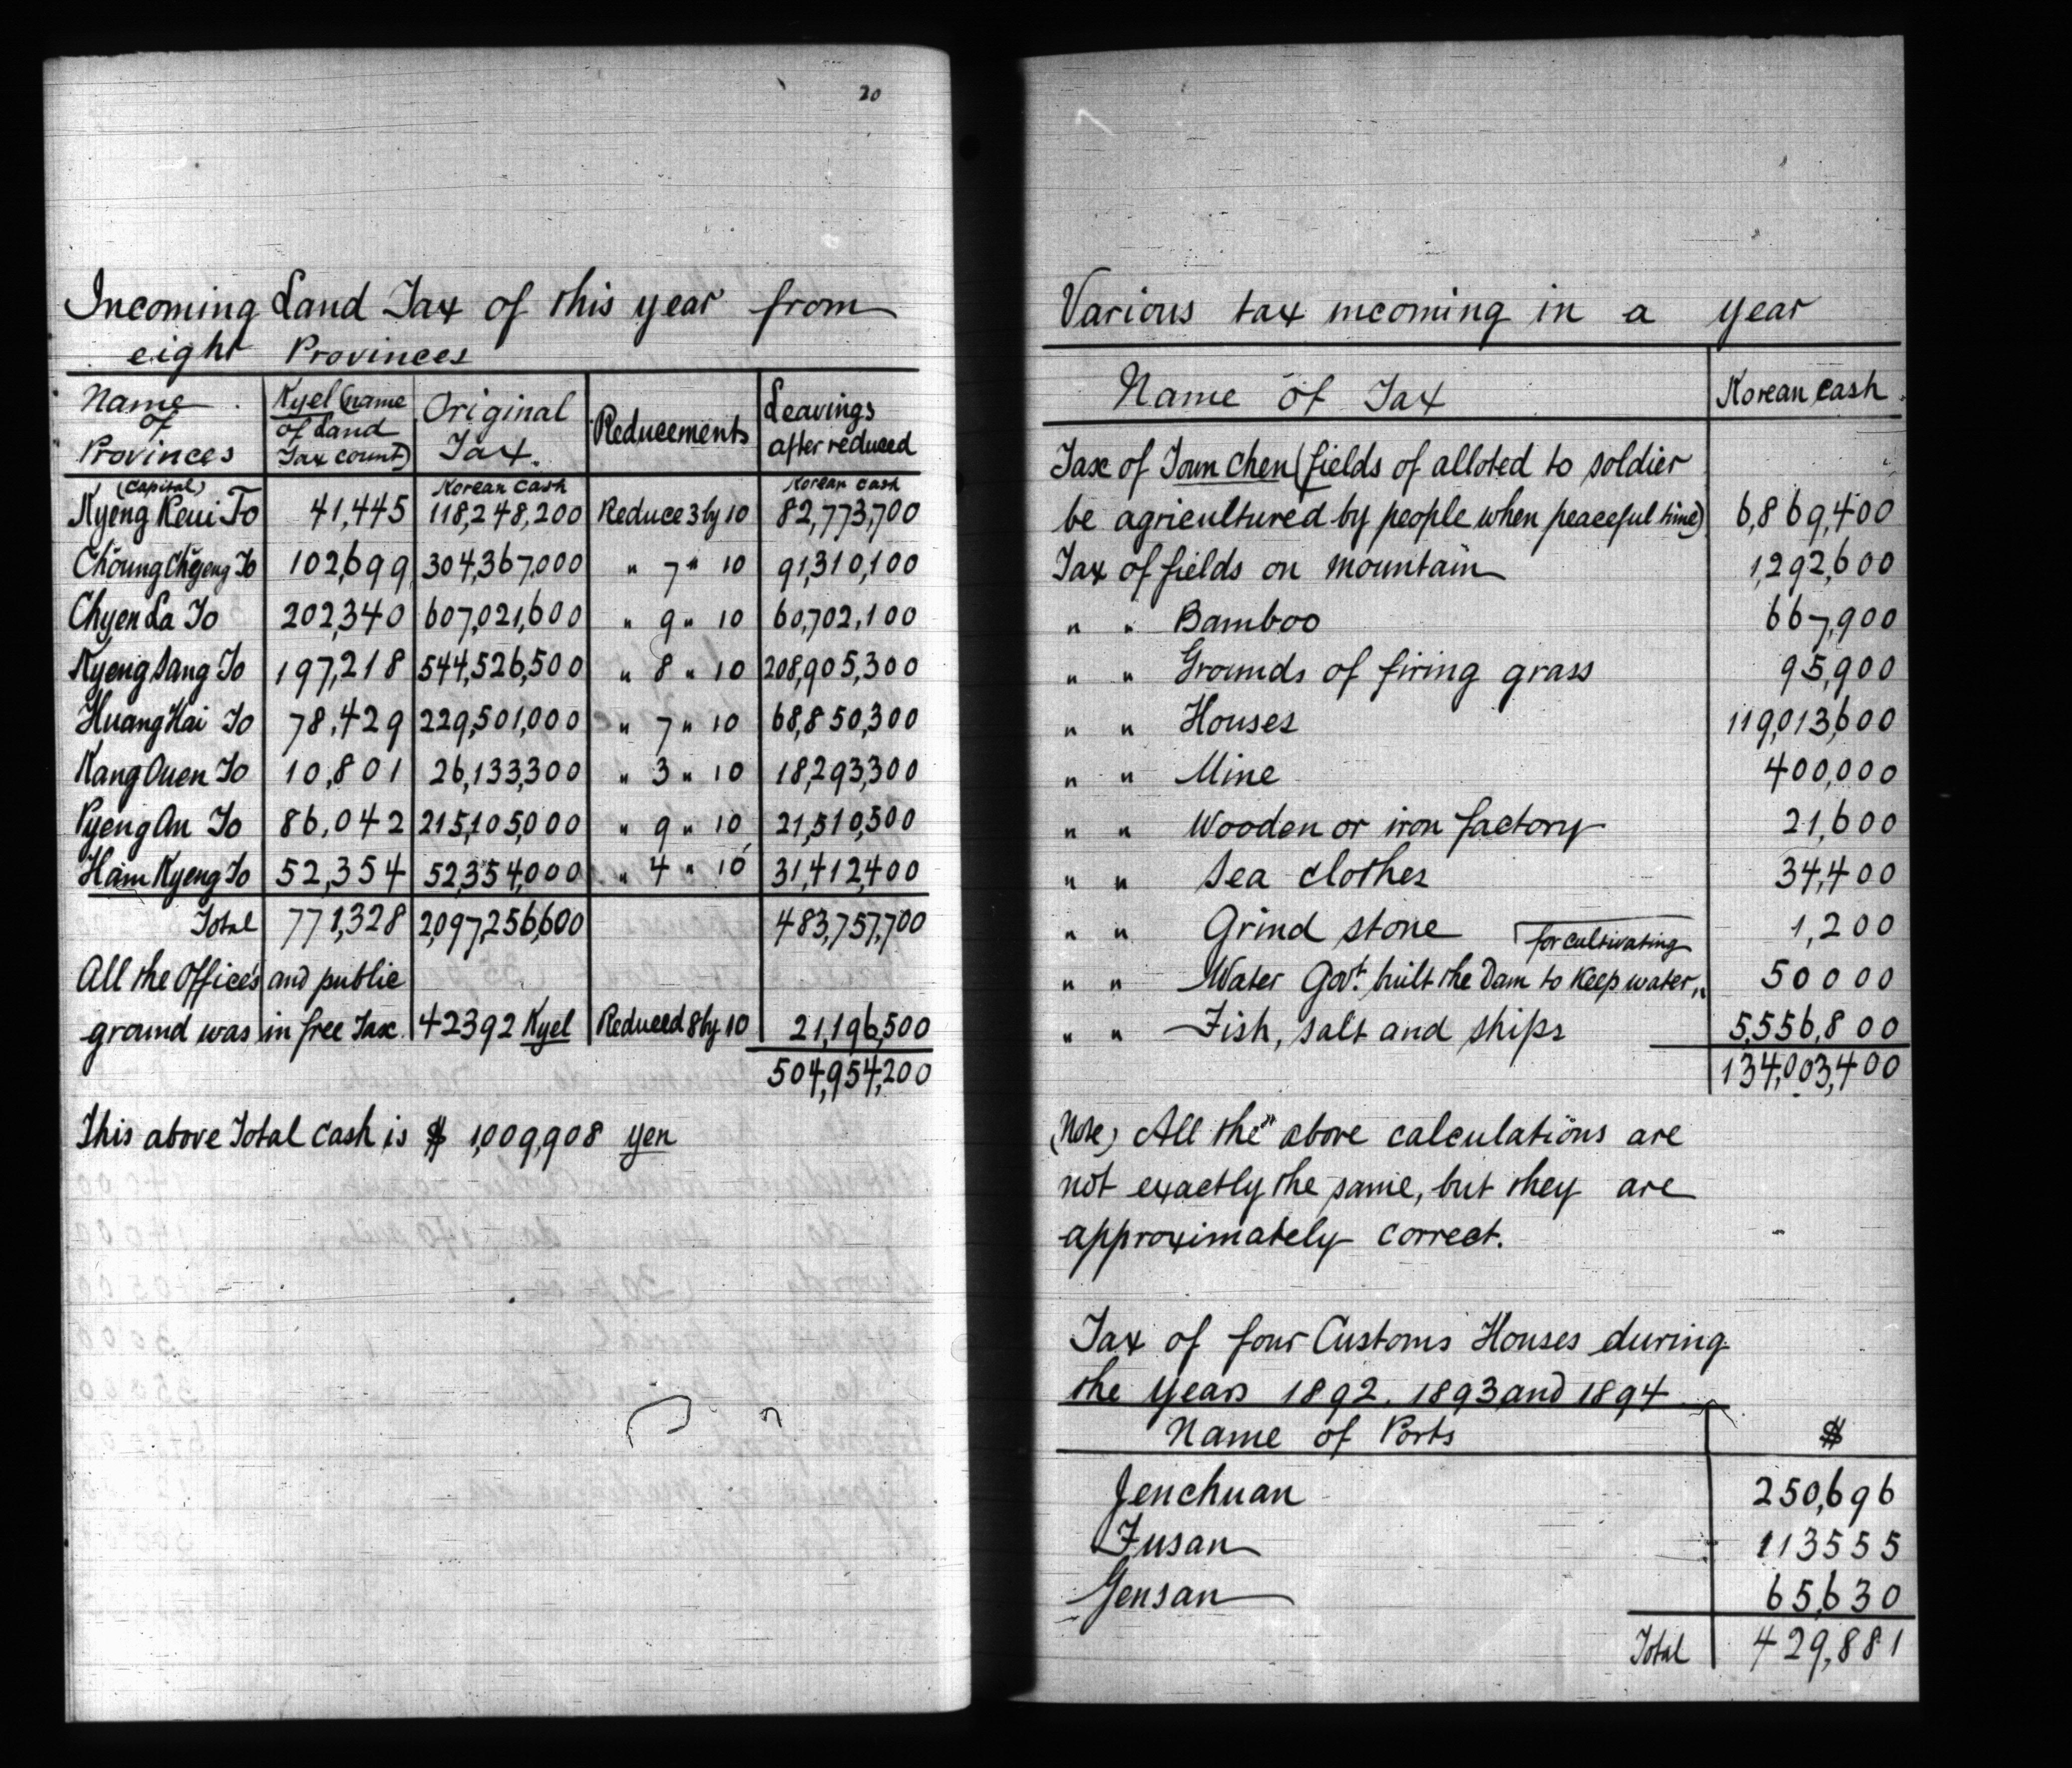 20
Incoming Land Tax of this year from
eight Provinces
Name of Provinces | Kyel (name of Land Tax count) | Original Tax. | Reducements | Leavings after reduced
(Capital) Korean Cash Korean Cash
Kyeng Keui To 41,445 118,248,200 Reduce 3 by 10 82,773,700
Choung Chyeng To 102,699 304,367,000 " 7 " 10 91,310,100
Chyen La To 202,340 607,021,600 " 9 " 10 60,702,100
Kyeng Sang To 197,218 544,526,500 " 8 " 10 208,905,300
Huang Hai To 78,429 229,501,000 " 7 " 10 68,850,300
Kang Ouen To 10,801 26,133,300 " 3 " 10 18,293,300
Pyeng An To 86,042 215,105,000 " 9 " 10 21,510,500
Ham Kyeng To 52,354 52,354,000 " 4 " 10 31,412,400
Total 771,328 2,097,256,600 483,757,700
All the Offices and public
ground was in free Tax. 42392 Kyel Reduced 8 by 10 21,196,500
504,954,200
This above Total Cash is $ 1,009,908 yen
Various tax incoming in a year
Name of Tax Korean Cash
Tax of Toun Chen (fields of alloted to soldier
be agricultured by people when peaceful time) 6,869,400
Tax of fields on mountain 1,292,600
" " Bamboo 667,900
" " Grounds of firing grass 95,900
" " Houses 119,013,600
" " Mine 400,000
" " Wooden or iron factory 21,600
" " Sea clothes 34,400
" " Grind stone 1,200
for cultivating
" " Water Govt. built the Dam to Keep water " 50000
" " Fish, salt and ships 5,556,800
134,003,400
(Note) All the above calculations are
not exactly the same, but they are
approximately correct.
Tax of four Customs Houses during
the years 1892. 1893 and 1894
Name of Ports $
Jenchuan 250,696
Fusan 113555
Gensan 65,630
Total 429,881